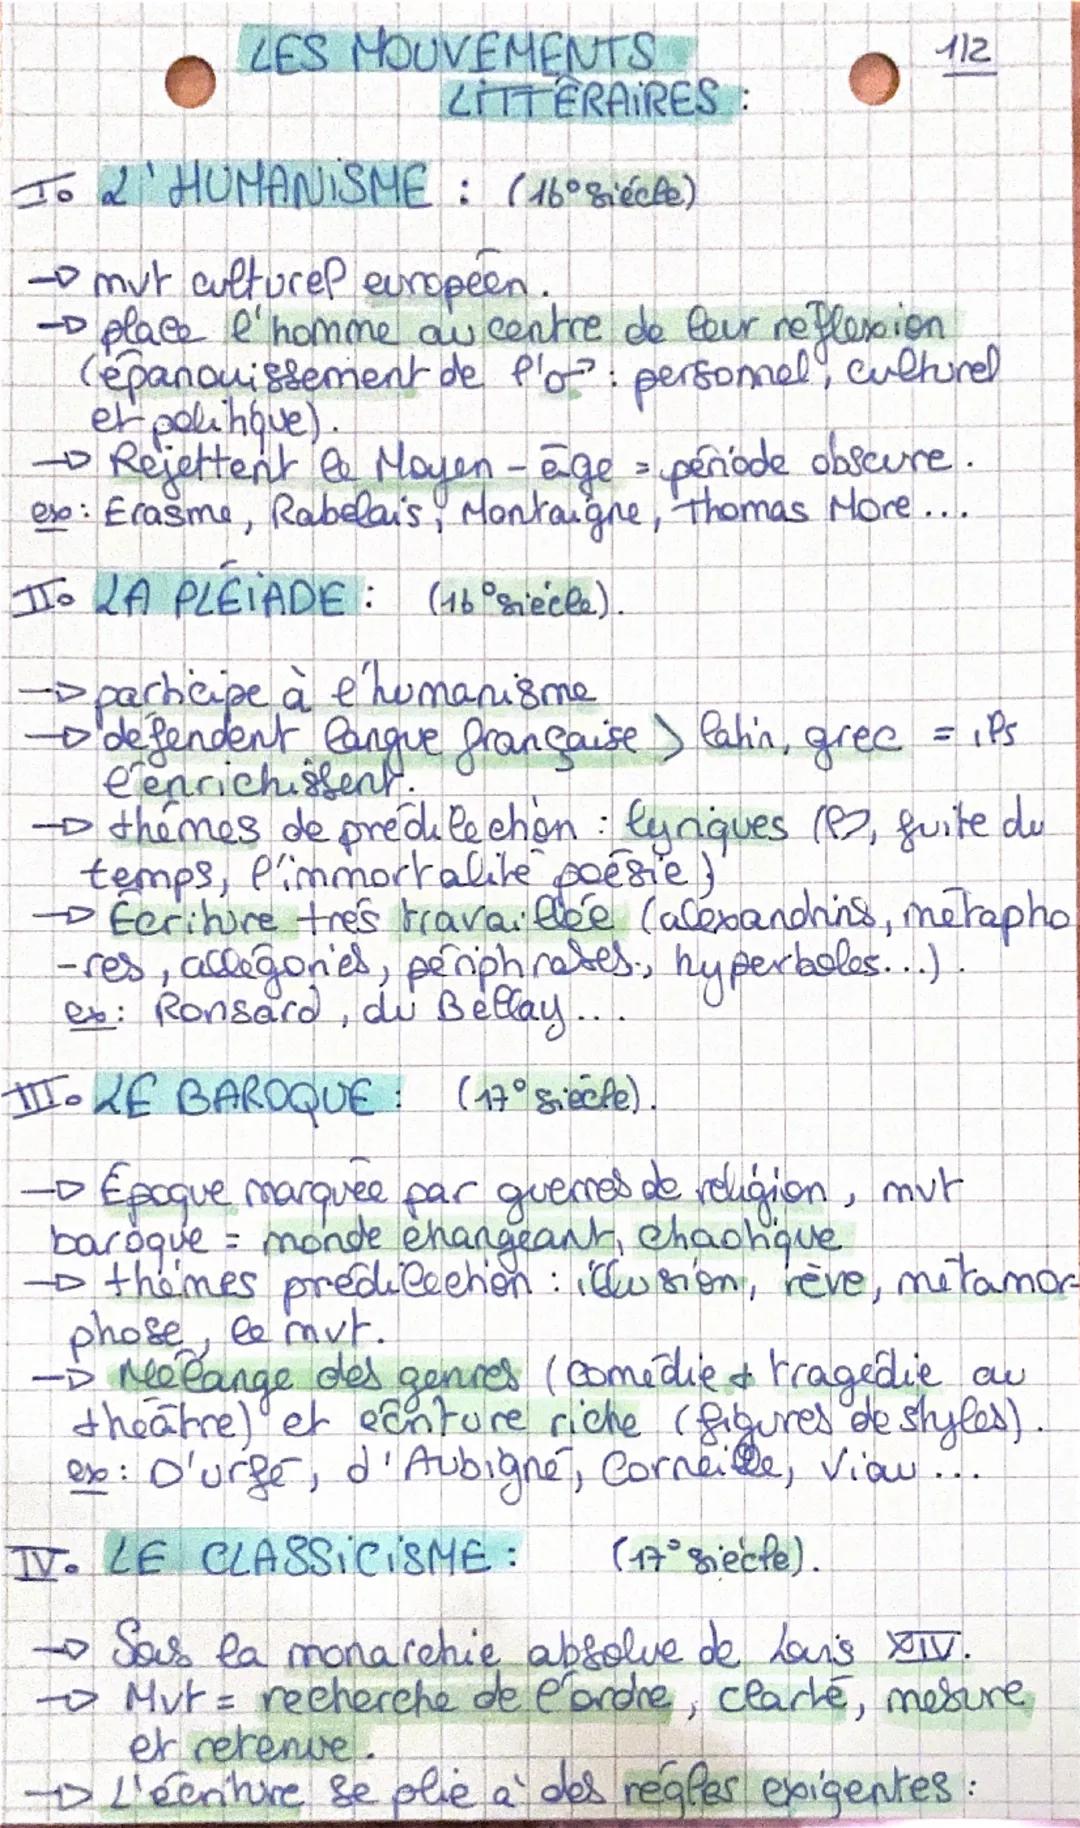 LES MOUVEMENTS
LITTÉRAIRES :
1/2
I. L'HUMANISME : (16° siècle)
→ mvt culturel européen.
→ place l'homme au centre de leur réflexion
(épanouissement de l'♂ : personnel, culturel
et politique).
→ Rejettent le Moyen-âge = période obscure.
ex : Erasme, Rabelais, Montaigne, Thomas More ...
II. LA PLÉIADE : (16° siècle).
→ participe à l'humanisme
→ défendent langue française > latin, grec = ils
l'enrichissent.
→ thèmes de prédilection : lyriques (♡, fuite du
temps, l'immortalité poésie)
→ Écriture très travaillée (alexandrins, métapho
-res, allégories, périphrases, hyperboles...).
ex : Ronsard, du Bellay...
III. LE BAROQUE : (17° siècle).
→ Époque marquée par guerres de religion, mvt
baroque = monde changeant, chaotique
→ thèmes prédilection : illusion, rêve, métamor-
phose, le mvt.
→ Mélange des genres (comédie + tragédie au
théâtre) et écriture riche (figures de styles).
ex : D'urfé, d'Aubigné, Corneille, Viau ...
IV. LE CLASSICISME : (17° siècle).
→ Sous la monarchie absolue de Louis XIV.
→ Mvt = recherche de l'ordre, clarté, mesure
et retenue.
→ L'écriture se plie à des règles exigentes :